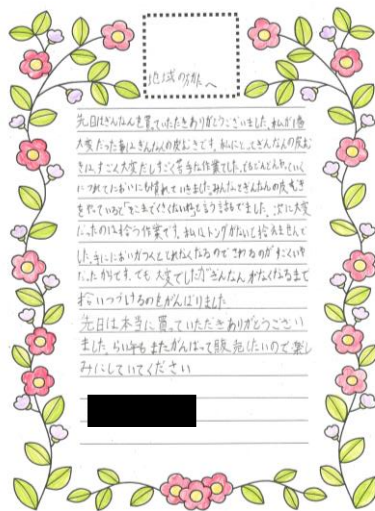 地域の皆へ
先日はぎんなんを買っていただきありがとうございました。私が1番
大変だった事はぎんなんの皮むきです。私にとってぎんなんの皮む
きは、すごく大変だしすごく苦手な作業でした。でもどんどんやっていく
につれてにおいにも慣れていきました。みんなでぎんなんの皮むき
をやっているとき「そこまでくさくないね」と言う言もでました。次に大変
だったのは拾う作業です。私はトングがないと拾えません
した。手ににおいがついてとれなくなるのでさわるのがすごくいや
だったからです。でも大変でしたがぎんなんがなくなるまで
拾いつづけるのをがんばりました
先日は本当に買っていただきありがとうござい
ました。らい年もまたがんばって販売したいので楽し
みにしていてください